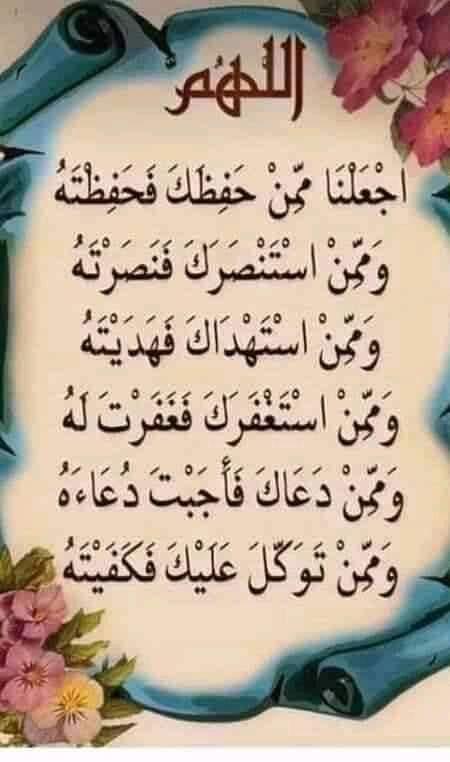 اللهم
اجْعَلْنَا مِمَّنْ حَفِظَكَ فَحَفِظْتَهُ
وَمِمَّنْ اسْتَنْصَرَكَ فَنَصَرْتَهُ
وَمِمَّنْ اسْتَهْدَاكَ فَهَدَيْتَهُ
وَمِمَّنْ اسْتَغْفَرَكَ فَغَفَرْتَ لَهُ
وَمِمَّنْ دَعَاكَ فَأَجَبْتَ دُعَاءَهُ
وَمِمَّنْ تَوَكَّلَ عَلَيْكَ فَكَفَيْتَهُ